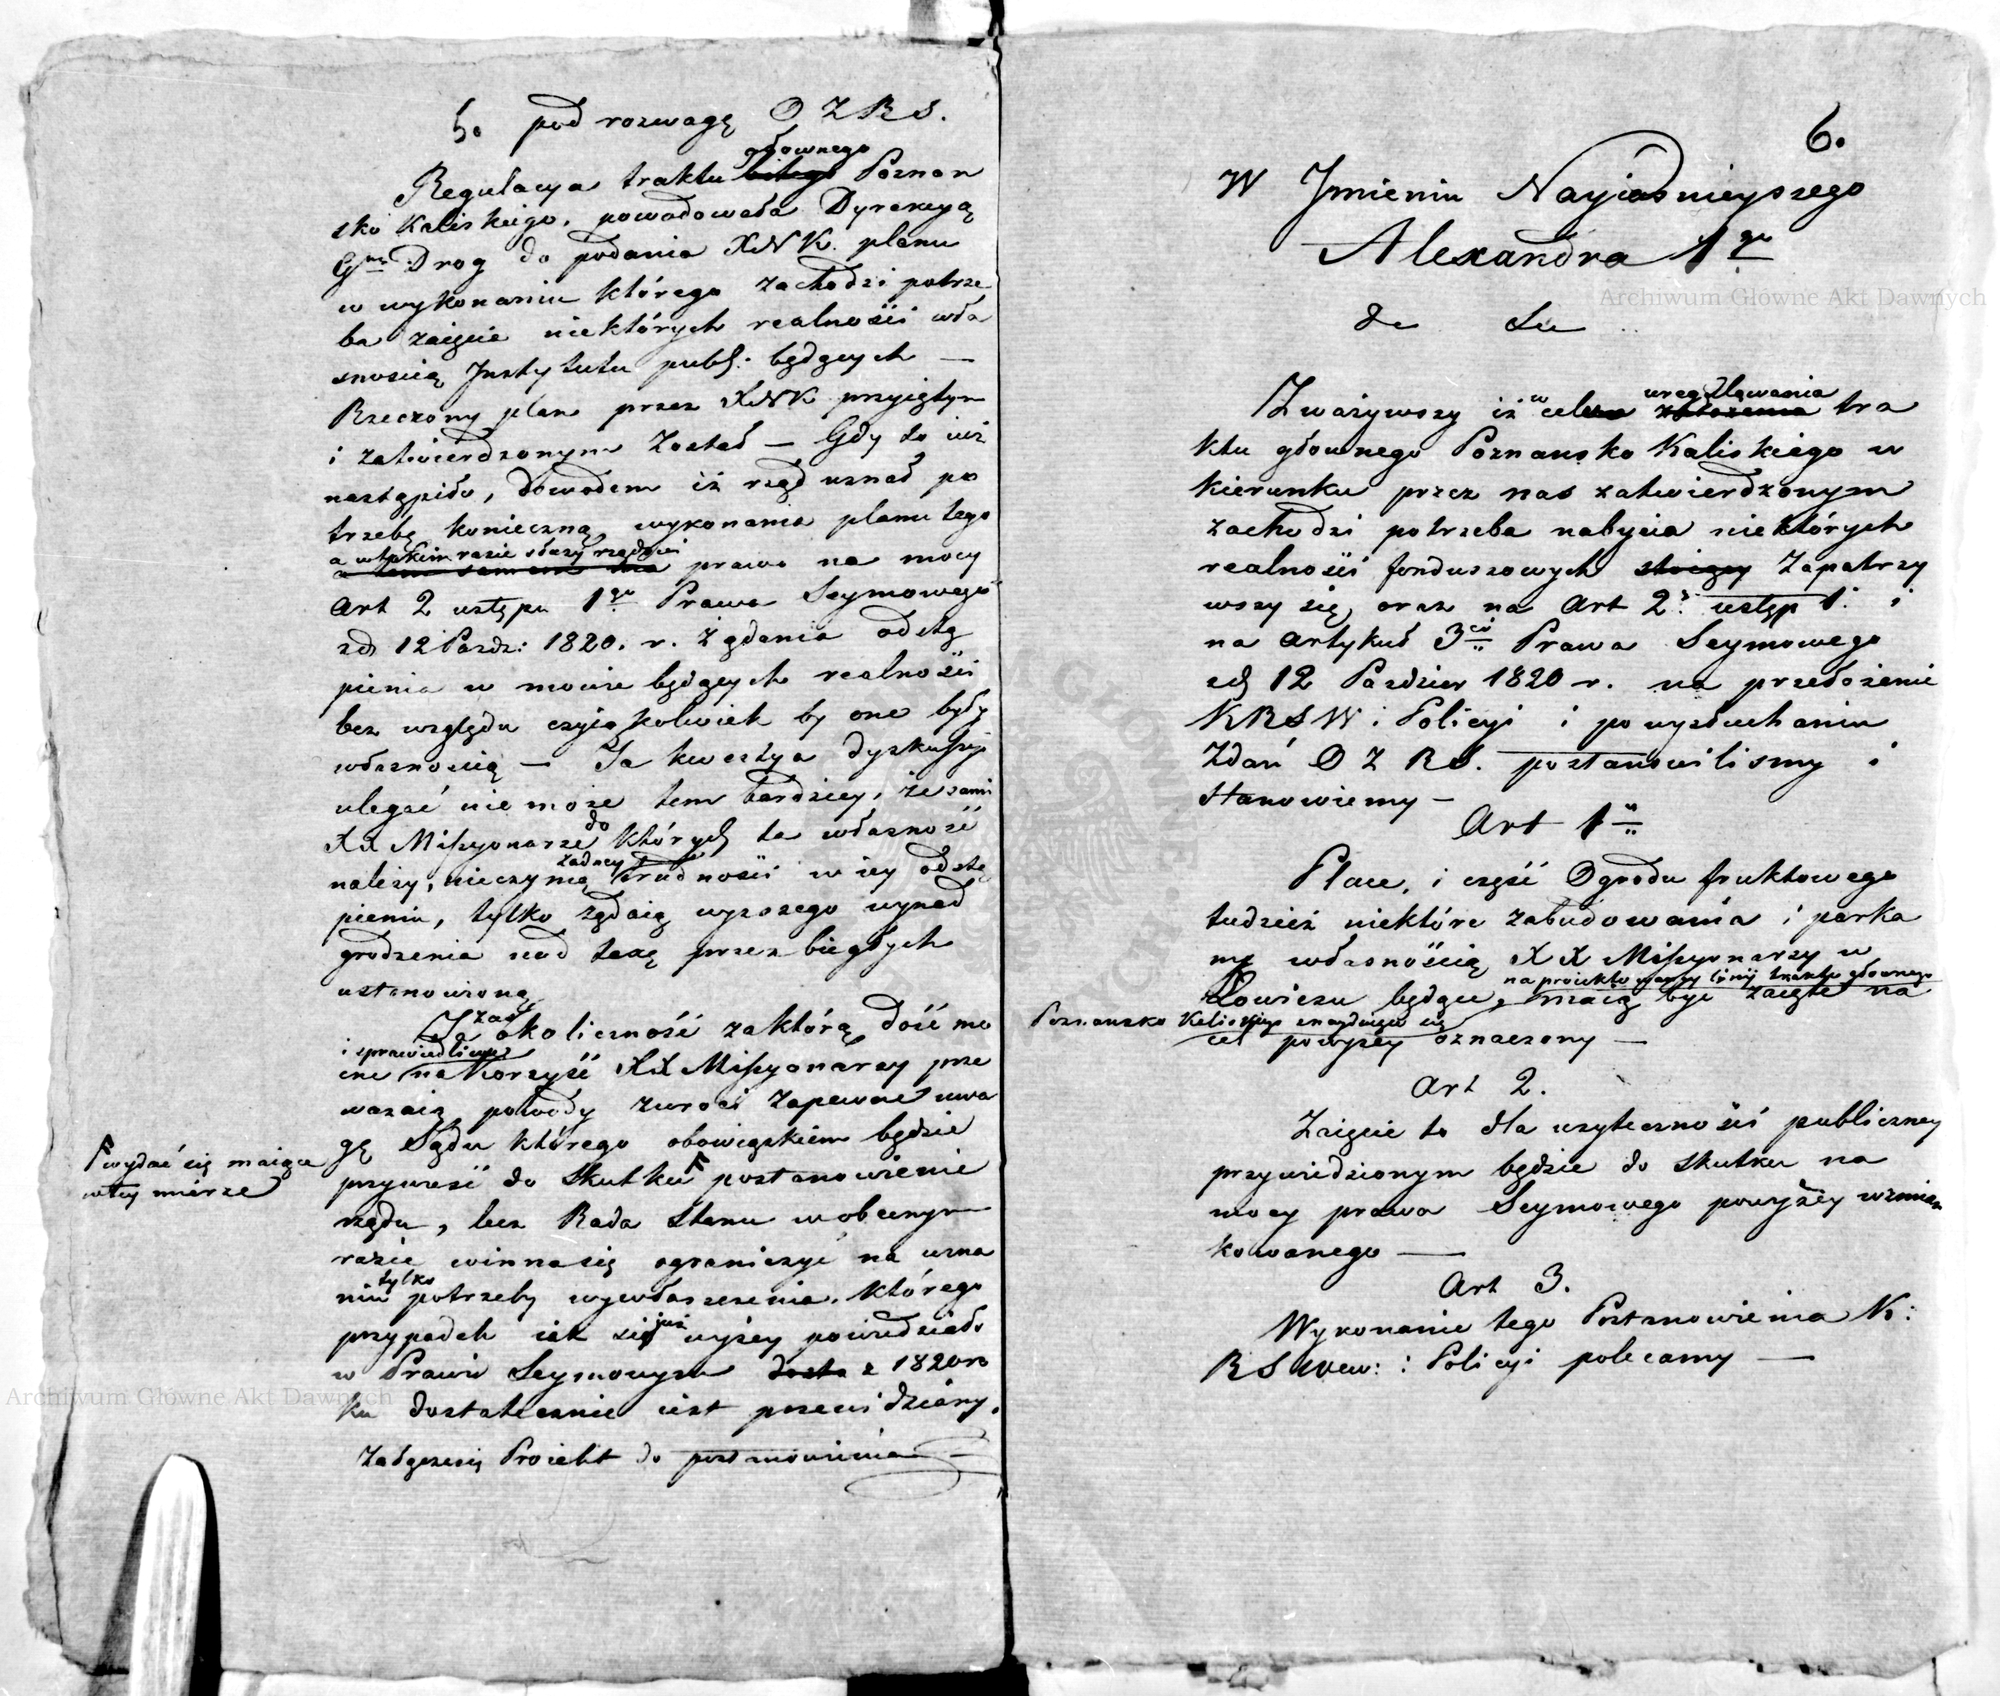 5. pod rozwagę O Z R S.
Regulacya traktu głownego Poznan
sko Kaliskiego, powodowała Dyrekcyą
Gną Drog do podania XNK. planu
w wykonaniu którego zachodzi potrze
ba zaięcie niektórych realności wła
snością Instytutu publ: będących —
Rzeczony plan przez XNK przyiętym
i zatwierdzonym został — Gdy to iuż
nastąpiło, dowodem iż rząd uznał po
trzebę konieczną, wykonania planu tego
a w takim razie służy rządowi
prawo na mocy
Art 2 ustępu 1go Prawa Seymowego
zd 12 Pazdz: 1820. r. żądania odstą
pienia w mowie będących realności
bez względu czyią kolwiek by one były
własnością — Ta kwestya dyskussyi
ulegać nie może tem bardziey, że sami
XX Missyonarze do których ta własność
należy, nieczynią żadney trudności w iey odstą
pieniu, tylko żądaią wyższego wynad
grodzenia nad taxę przez biegłych
ustanowioną
Ta zaś okoliczność za którą dość mo
cne i sprawiedliwe na korzyść XX Missyonarzy prze
ważaią powody zwroci zapewne uwa
gę Sądu którego obowiązkiem będzie
przywieść do skutku postanowienie
wydać się maiące
w tey mierze
rządu, lecz Rada Stanu w obecnym
razie winna się ograniczyć na uzna
niu tylko potrzeby wywłaszczenia, którego
przypadek iak się iuż wyżey powiedziało
w Prawie Seymowym z 1820 ro
ku dostatecznie iest przewidziany.
Załącza się Proiekt do postanowienia
6.
W Imieniu Nayiaśnieyszego
Alexandra 1go
&c &c
Zważywszy iż w celu uregulowania tra
ktu głownego Poznansko Kaliskiego w
kierunku przez nas zatwierdzonym
zachodzi potrzeba nabycia niektórych
realności funduszowych Zapatrzy
wszy się, oraz na Art 2. ustęp 1. i
na artykuł 3ci Prawa Seymowego
zd 12 Pazdzier 1820 r. na przełożenie
KRSW i Policyi i po wysłuchaniu
Zdań O Z R S. postanowilismy i
Stanowiemy —
Art 1
Place, i część Ogrodu fruktowego
tudzież niektóre zabudowania i parka
ny własnością XX Missyonarzy w
Łowiczu będące, na proiektowaney linii traktu głownego
Poznansko Kaliskiego znayduiące się
maią być zaięte na
cel powyżey oznaczony —
Art 2.
Zaięcie to dla użyteczności publiczney
przywiedzionym będzie do skutku na
mocy prawa Seymowego powyżey wzmian
kowanego —
Art 3.
Wykonanie tego Postanowienia K:
R S wew: i Policyi polecamy —
Archiwum Główne Akt Dawnych
Archiwum Główne Akt Dawnych